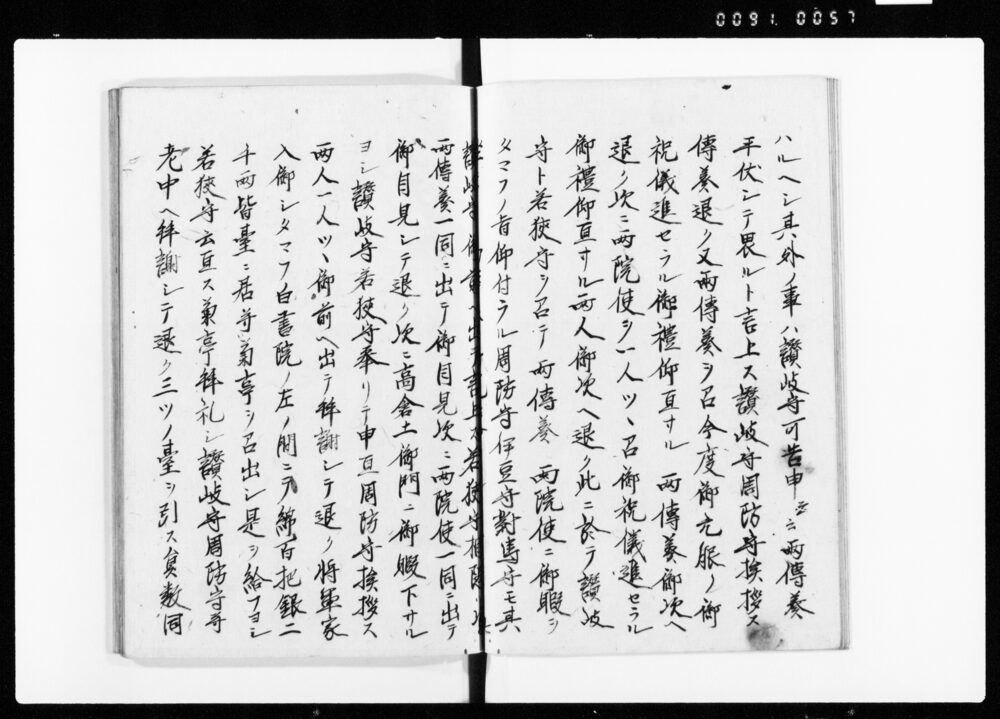 0091.0057
ハルヘシ其外ノ事ハ讃岐守可告申云云両傳奏
平伏シテ畏ルト言上ス讃岐守周防守挨拶ス
傳奏退ク又両傳奏ヲ召今度御元服ノ御
祝儀進セラル御禮仰亘サル両傳奏御次ヘ
退ク次ニ両院使ヲ一人ツヽ召御祝儀進セラル
御禮仰亘サル両人御次ヘ退ク此ニ於テ讃岐
守ト若狭守ヲ召テ両傳奏両院使ニ御暇ヲ
タマフノ旨仰付ラル周防守伊豆守對馬守モ其
讃岐守御前ヘ出テ言上ス若狭守相
両傳奏一同ニ出テ御目見次ニ両院使一同ニ出テ
御目見シテ退ク次ニ高倉土御門ニ御暇下サル
ヨシ讃岐守若狭守奉リテ申亘周防守挨拶ス
両人一人ツヽ御前ヘ出テ拝謝シテ退ク将軍家
入御シタマフ白書院ノ左ノ間ニテ綿百把銀二
千両皆臺ニ居并菊亭ヲ召出シ是ヲ給フヨシ
若狭守云亘ス菊亭拝礼シ讃岐守周防守等
老中ヘ拝謝シテ退ク三ツノ臺ヲ引ス員数同